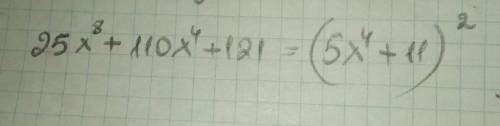 25x⁸ + 110x⁴ + 121 = (5x⁴ + 11)²